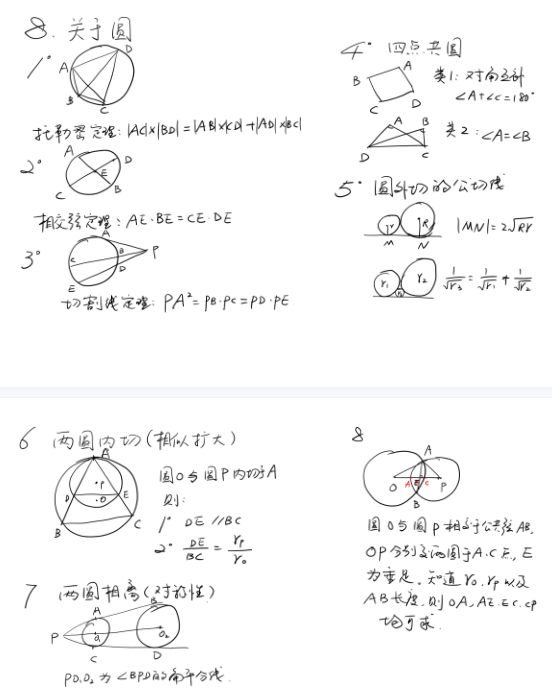 8. 关于圆
1°
A
D
B
C
托勒密定理: |AC|×|BD|=|AB|×|CD|+|AD|×|BC|
2°
A
D
E
C
B
相交弦定理: AE·BE=CE·DE
3°
A
B
P
C
D
E
切割线定理: PA²=PB·PC=PD·PE
4° 四点共圆
A
B
C
D
类1: 对角互补
∠A+∠C=180°
A
B
D
C
类2: ∠A=∠B
5° 圆外切的公切线
r
R
M
N
|MN|=2√Rr
r₁
r₂
r₃
1/√r₃=1/√r₁+1/√r₂
6 两圆内切(相似扩大)
A
P
O
D
E
B
C
圆O与圆P内切于A
则:
1° DE//BC
2° DE/BC=rp/ro
7 两圆相离(对称性)
B
A
P
O₁
O₂
C
D
PO₁O₂为∠BPD的角平分线.
8
A
O
A
E
C
P
B
圆O与圆P相交于公共弦AB,
OP分别交两圆于A.C点, E
为垂足. 知道ro.rp以及
AB长度, 则OA,AE.EC.CP
均可求.